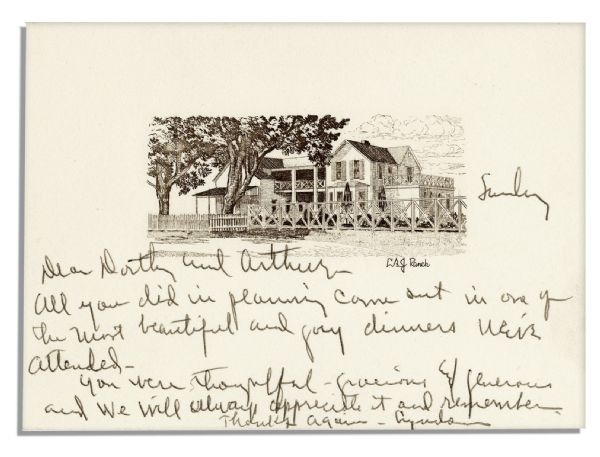 Sunday
LBJ Ranch
Dear Dorthy and Arthur—
All you did in planning came out in one of
the most beautiful and gay dinners We've
attended—
You were thoughtful – gracious & generous
and we will always appreciate it and remember—
Thanks again – Lyndon